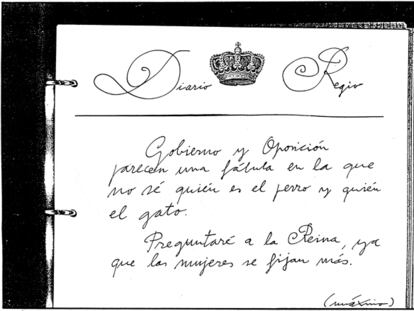 Diario Regio
Gobierno y Oposición
parecen una fábula en la que
no sé quién es el perro y quién
el gato.
Preguntaré a la Reina, ya
que las mujeres se fijan más.
(máximo)